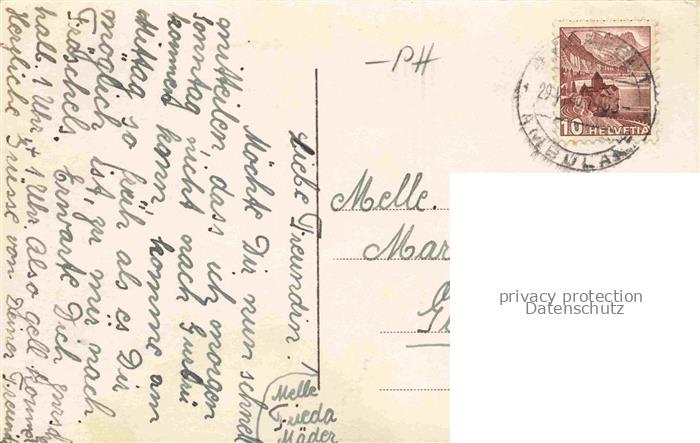 Liebe Freundin!
Möchte Dir nun schnell
mitteilen, dass ich morgen
Sonntag nicht nach Gurbrü
kommen kann, komme am
Mittag so früh als es Dir
möglich ist, zu mir nach
Fräschels. Erwarte Dich
halb 1 Uhr, + 1 Uhr. Also gell komm
Herzliche Grüsse von Deiner Freundin
Melle
Frieda
Mäder
-PH
Melle.
Mar
HELVETIA
10
AMBULANT
privacy protection
Datenschutz